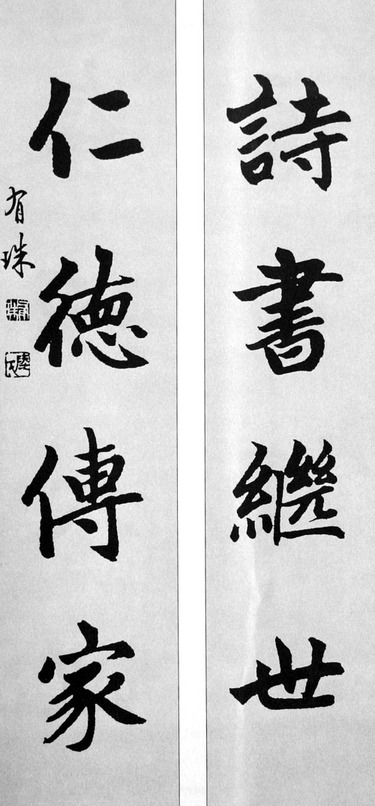 詩書繼世
仁德傳家
有珠